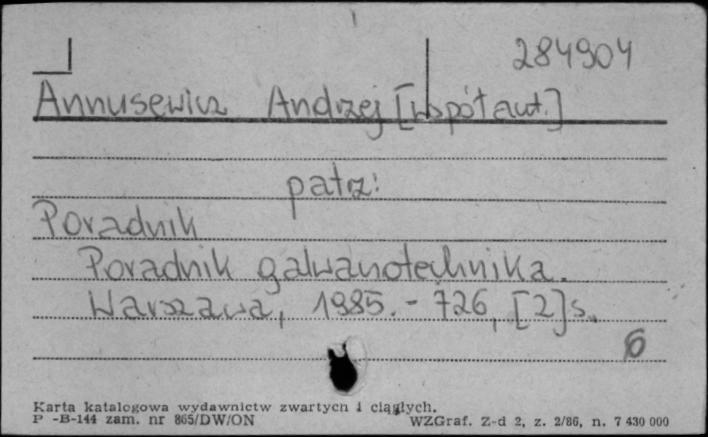 284904
Annusewicz Andrzej [współaut.]
patrz:
Poradnik
Poradnik galwanotechnika.
Warszawa, 1985. - 726, [2] s.
6
Karta katalogowa wydawnictw zwartych i ciągłych.
P -B-144 zam. nr 865/DW/ON
WZGraf. Z-d 2, z. 2/86, n. 7 430 000